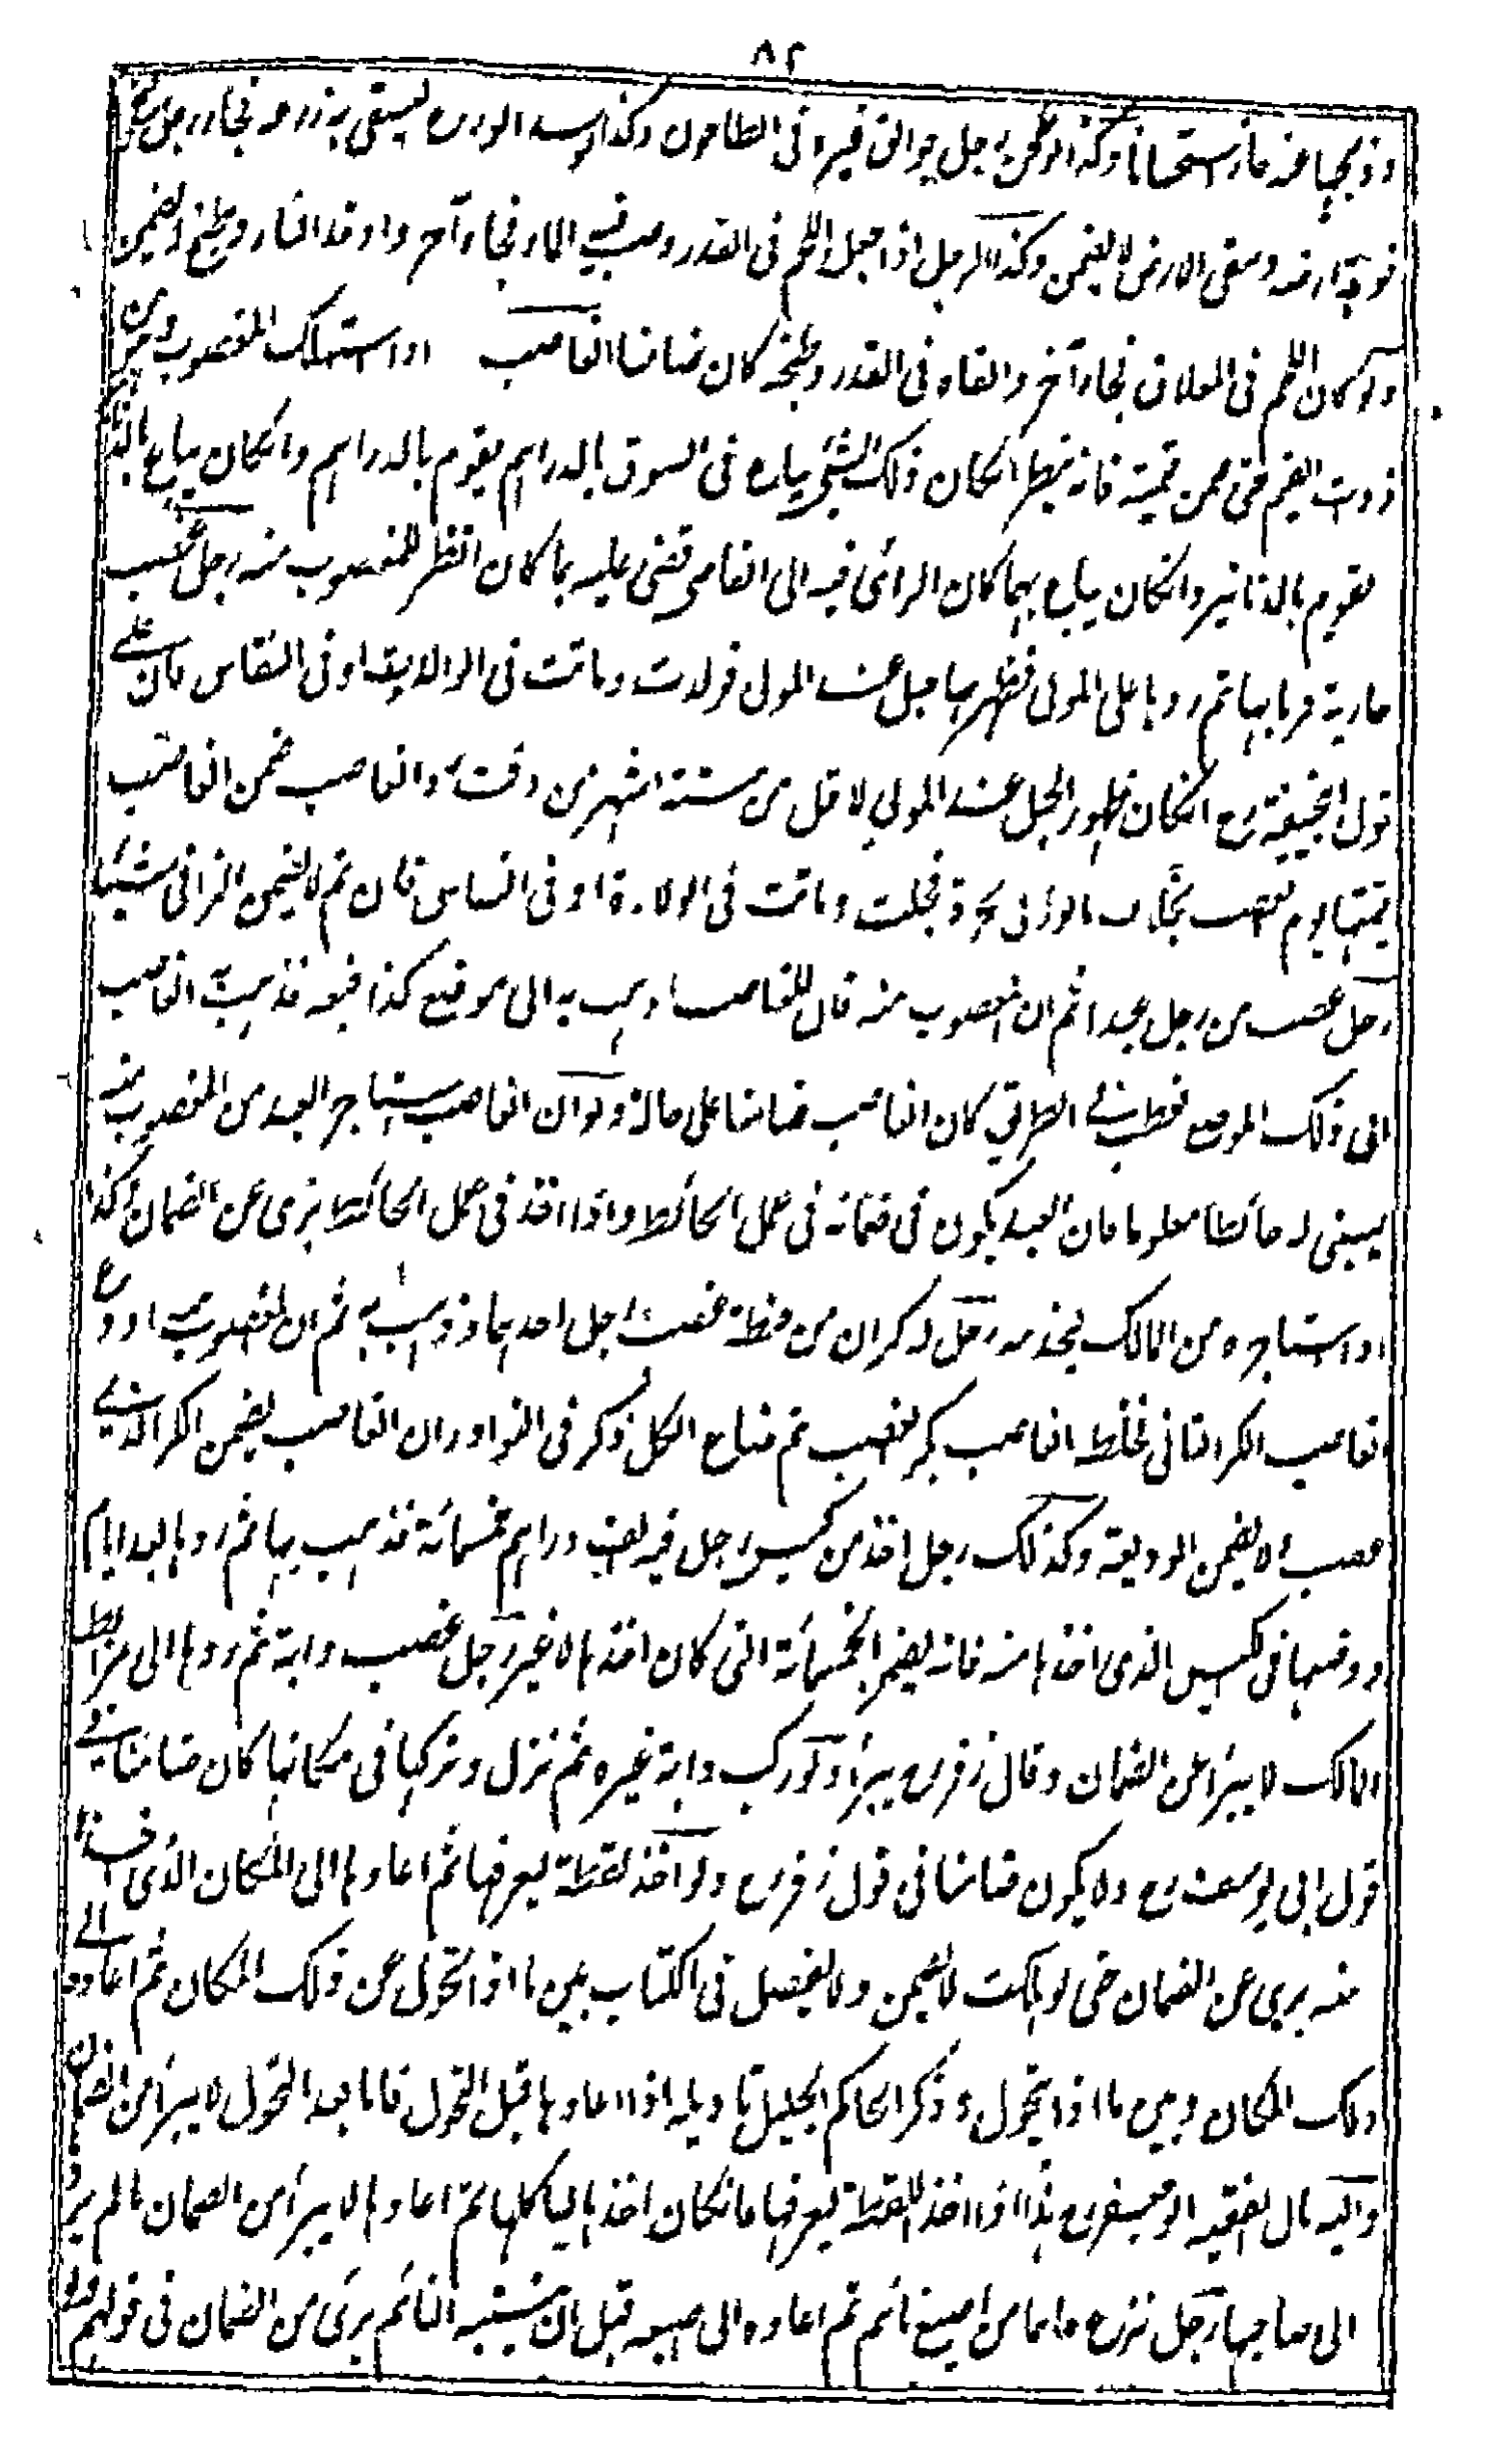 ٨٢
وذبحها غيره جاز استحسانا وكذا لو طحن رجل جوالق غيره فى الطاحون وكذا لو سد الورد ليسقى به زرعه فجاء رجل
فوهة ارضه وسقى الارض لا يضمن وكذا الرجل اذا جعل اللحم فى القدر وصب فيه الماء فجاء آخر واوقد النار وطبخ لا يضمن
ولو كان اللحم فى المعلاق فجاء آخر والقاه فى القدر وطبخه كان ضامنا الغاصب اذا استهلك المغصوب وهو من
ذوات القيم حتى ضمن قيمته فانه ينظر انكان ذلك الشئ يباع فى السوق بالدراهم يقوم بالدراهم وانكان يباع
يقوم بالدنانير وانكان يباع بهما كان الرائ فيه الى القاضى قضى عليه بما كان انظر للمغصوب منه رجل غصب
جارية فزنا بها ثم ردها على المولى فظهر بها حبل عند المولى فولدت وماتت فى الولادة او فى النفاس فان على
قول ابيحنيفة رح انكان ظهور الحبل عند المولى لاقل من ستة اشهر من وقت رد الغاصب ضمن الغاصب
قيمتها يوم غصب بخلاف ما لو زنى بحرة فحبلت وماتت فى الولادة او فى النفاس فان ثم لا يضمن الزانى شيئا
رجل غصب من رجل عبدا ثم ان المغصوب منه قال للغاصب اذهب به الى موضع كذا فبعه فذهب به الغاصب
الى ذلك الموضع فعطب فى الطريق كان الغاصب ضامنا على حاله ولو ان الغاصب استاجر العبد من المغصوب منه
ليبنى له حائطا معلوما فان العبد يكون فى ضمانه فى عمل الحائط واذا اخذ فى عمل الحائط برى عن الضمان وكذا
اذا استاجره من المالك لخدمه رجل له كران من حنطة غصب رجل احدهما وذهب به ثم ان المغصوب منه اودع
الغاصب الكر الثانى فخلط الغاصب بكر الغصب ثم ضاع الكل ذكر فى النوادر ان الغاصب يضمن الكر الذى
غصب ولا يضمن الوديعة وكذلك رجل اخذ من كيس رجل فيه الف درهم خمسمائة فذهب بها ثم ردها بعد ايام
ووضعها فى الكيس الذى اخذها منه فانه يضمن الخمسمائة التى كان اخذها لا غير رجل غصب دابة ثم ردها الى مربط
المالك لا يبرأ عن الضمان وقال زفر رح يبرأ ولو ركب دابة غيره ثم نزل وتركها فى مكانها كان ضامنا فى
قول ابى يوسف رح ولا يكون ضامنا فى قول زفر رح ولو اخذ لقطة ليعرفها ثم اعادها الى المكان الذى اخذها
منه برى عن الضمان حتى لو هلكت لا يضمن ولا يفصل فى الكتاب بين ما اذا تحول عن ذلك المكان ثم اعادها الى
ذلك المكان وبين ما اذا لم يتحول وذكر الحاكم الجليل تاويله اذا اعادها قبل التحول فاما بعد التحول لا يبرأ من الضمان
واليه مال الفقيه ابو جعفر رح هذا اذا اخذ اللقطة ليعرفها فانكان اخذها لياكلها ثم اعادها لا يبرأ من الضمان ما لم يردها
الى صاحبها رجل نزع خاتما من اصبع نائم ثم اعاده الى اصبعه قبل ان ينتبه النائم برئ من الضمان فى قولهم ولو